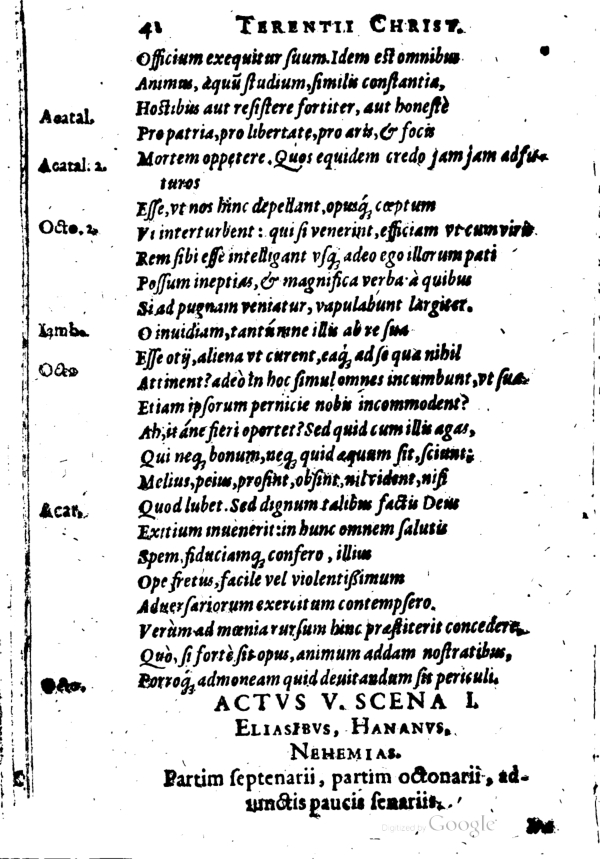 42 TERENTII CHRIST.
Officium exequitur suum. Idem est omnibus
Animus, æquũ studium, similis constantia,
Acatal. Hostibus aut resistere fortiter, aut honestè
Pro patria, pro libertate, pro aris, & focis
Acatal. 2. Mortem oppetere. Quos equidem credo jam jam adfu-
turos
Esse, vt nos hinc depellant, opusq́; cœptum
Octo. 2. Vt interturbent: qui si venerint, efficiam vt cum viris
Rem sibi esse intelligant vsq́; adeo ego illorum pati
Possum ineptias, & magnifica verba à quibus
Si ad pugnam veniatur, vapulabunt largiter.
Iamb. O inuidiam, tantúmne illis ab re sua
Esse otij, aliena vt curent, eaq́; ad se qua nihil
Octo Attinent? adeò in hoc simul omnes incumbunt, vt sua
Etiam ipsorum pernicie nobis incommodent?
Ah, itáne fieri oportet? Sed quid cum illis agas,
Qui neq́; bonum, neq́; quid æquum sit, sciunt;
Melius, peius, prosint, obsint, nil vident, nisi
Acat. Quod lubet. Sed dignum talibus factis Deus
Exitium inuenerit: in hunc omnem salutis
Spem, fiduciamq́; confero, illius
Ope fretus, facile vel violentissimum
Aduersariorum exercitum contempsero.
Verùm ad mœnia rursum hinc præstiterit concedere,
Quò, si fortè sit opus, animum addam nostratibus,
Octo. Porroq́; admoneam quid deuitandum sit periculi.
ACTVS V. SCENA I.
ELIASIBVS, HANANVS,
NEHEMIAS.
Partim septenarii, partim octonarii, ad-
iunctis paucis senariis.
Digitized by Google